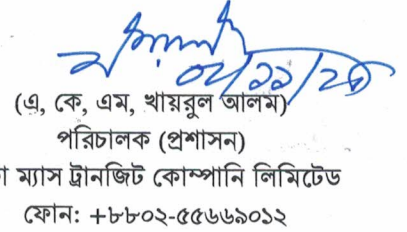 ০২/১১/২৫
(এ, কে, এম, খায়রুল আলম)
পরিচালক (প্রশাসন)
ম্যাস ট্রানজিট কোম্পানি লিমিটেড
ফোন: +৮৮০২-৫৫৬৬৯০১২